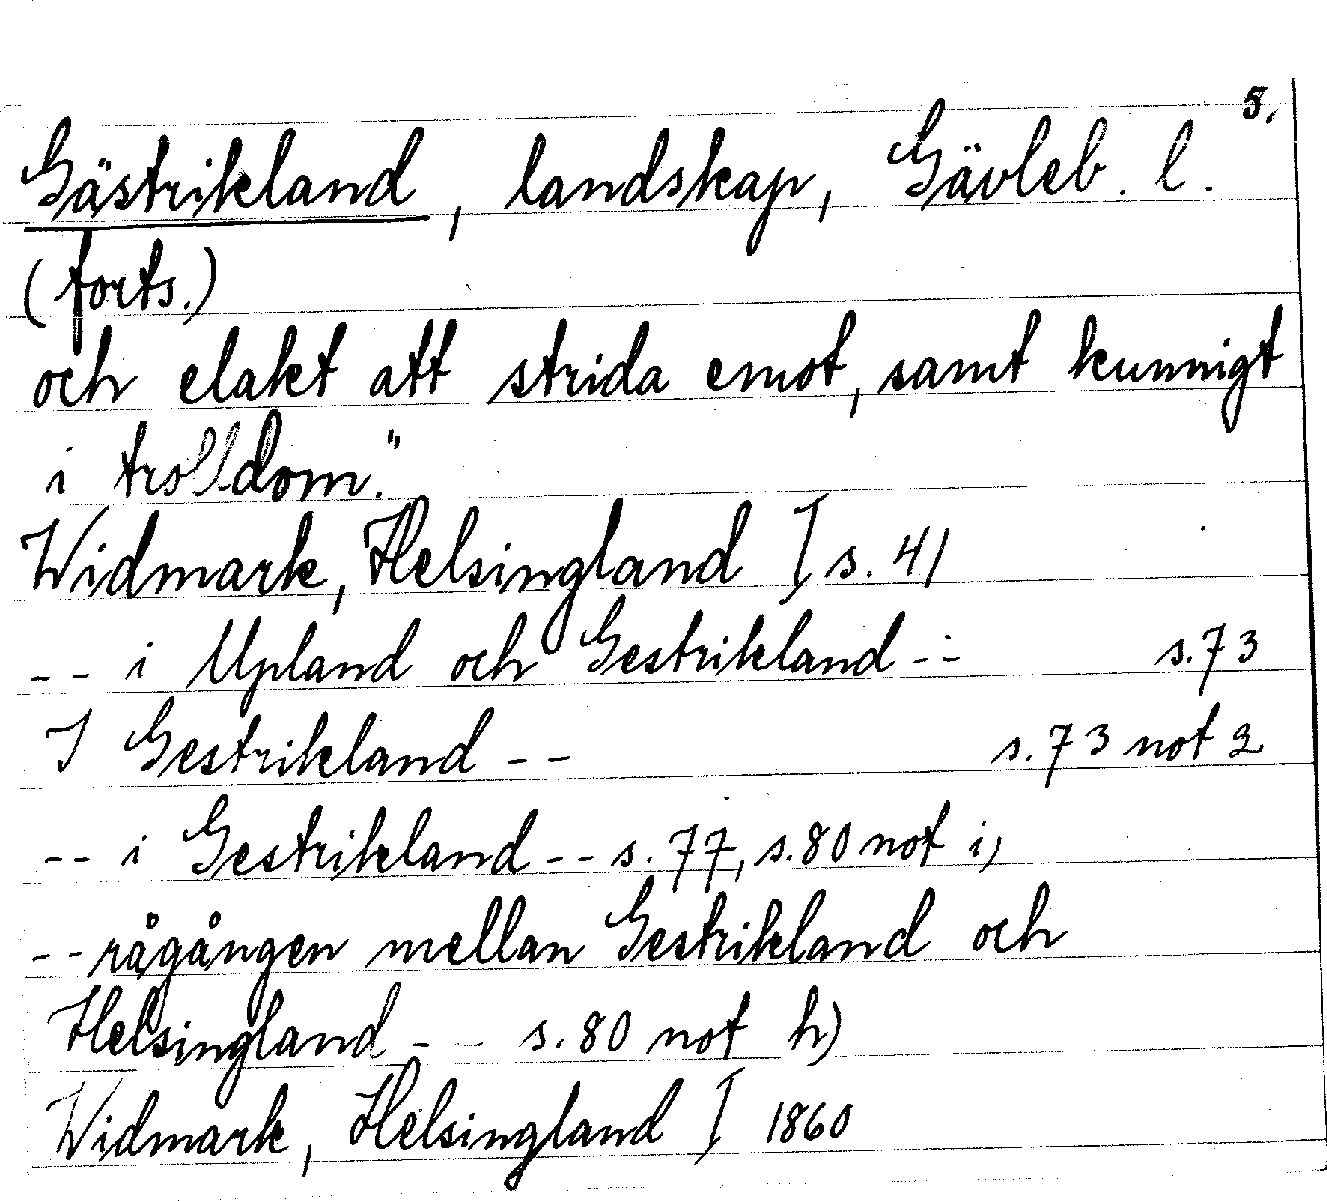 5.
Gästrikland, landskap, Gävleb. l.
(forts.)
och elakt att strida emot, samt kunnigt
i trolldom."
Widmark, Helsingland I s. 41
-- i Upland och Gestrikland -- s. 73
I Gestrikland -- s. 73 not 2
-- i Gestrikland -- s. 77, s. 80 not i)
-- rågången mellan Gestrikland och
Helsingland -- s. 80 not h)
Widmark, Helsingland I 1860